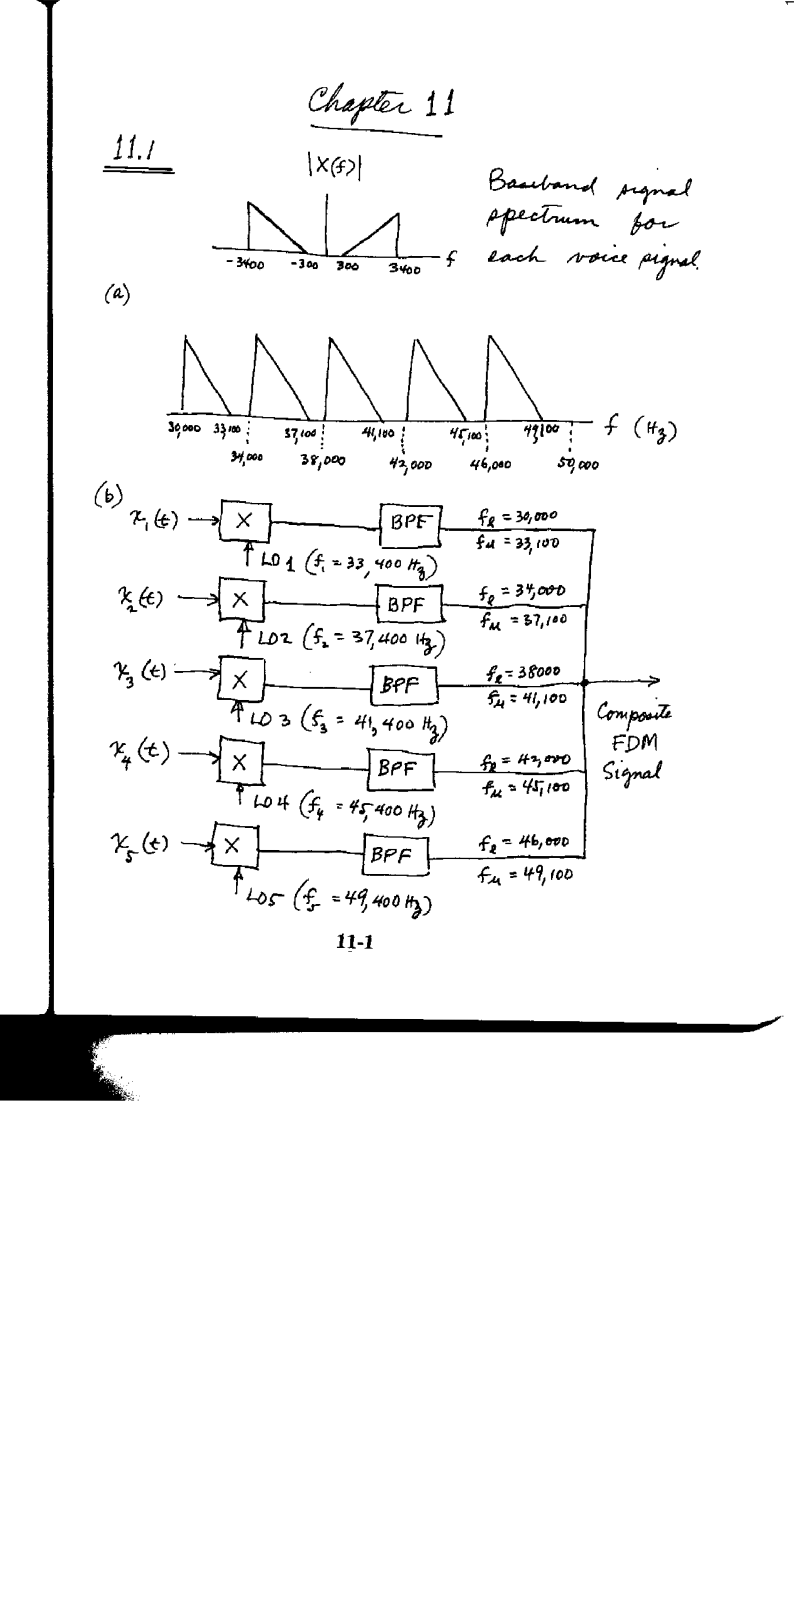 Chapter 11
11.1
|X(f)|
Baseband signal
spectrum for
each voice signal.
-3400 -300 300 3400 f
(a)
30,000 33,100 37,100 41,100 45,100 49,100 f (Hz)
34,000 38,000 42,000 46,000 50,000
(b)
x₁(t) X BPF fℓ = 30,000
fu = 33,100
LO1 (f₁ = 33,400 Hz)
x₂(t) X BPF fℓ = 34,000
fu = 37,100
LO2 (f₂ = 37,400 Hz)
x₃(t) X BPF fℓ = 38000
fu = 41,100
LO3 (f₃ = 41,400 Hz)
Composite
FDM
Signal
x₄(t) X BPF fℓ = 42,000
fu = 45,100
LO4 (f₄ = 45,400 Hz)
x₅(t) X BPF fℓ = 46,000
fu = 49,100
LO5 (f₅ = 49,400 Hz)
11-1